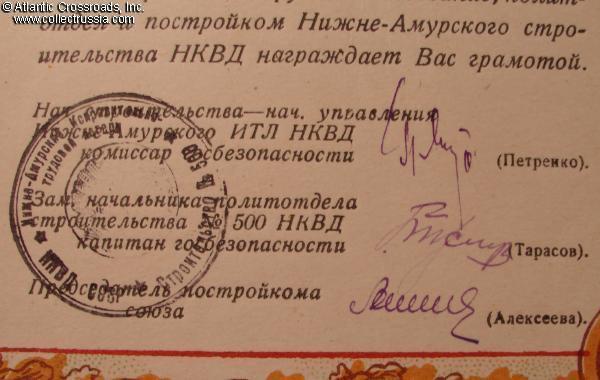 © Atlantic Crossroads, Inc.
www.collectrussia.com
отдел и постройком Нижне-Амурского стро-
ительства НКВД награждает Вас грамотой.
Нач. строительства—нач. управления
Нижне-Амурского ИТЛ НКВД
комиссар госбезопасности
(Петренко).
Зам. начальника политотдела
строительства № 500 НКВД
капитан госбезопасности
(Тарасов).
Председатель постройкома
союза
(Алексеева).
Нижне-Амурский Исправительно-
трудовой лагерь
★ НКВД СССР ★ Строительство № 500 ★